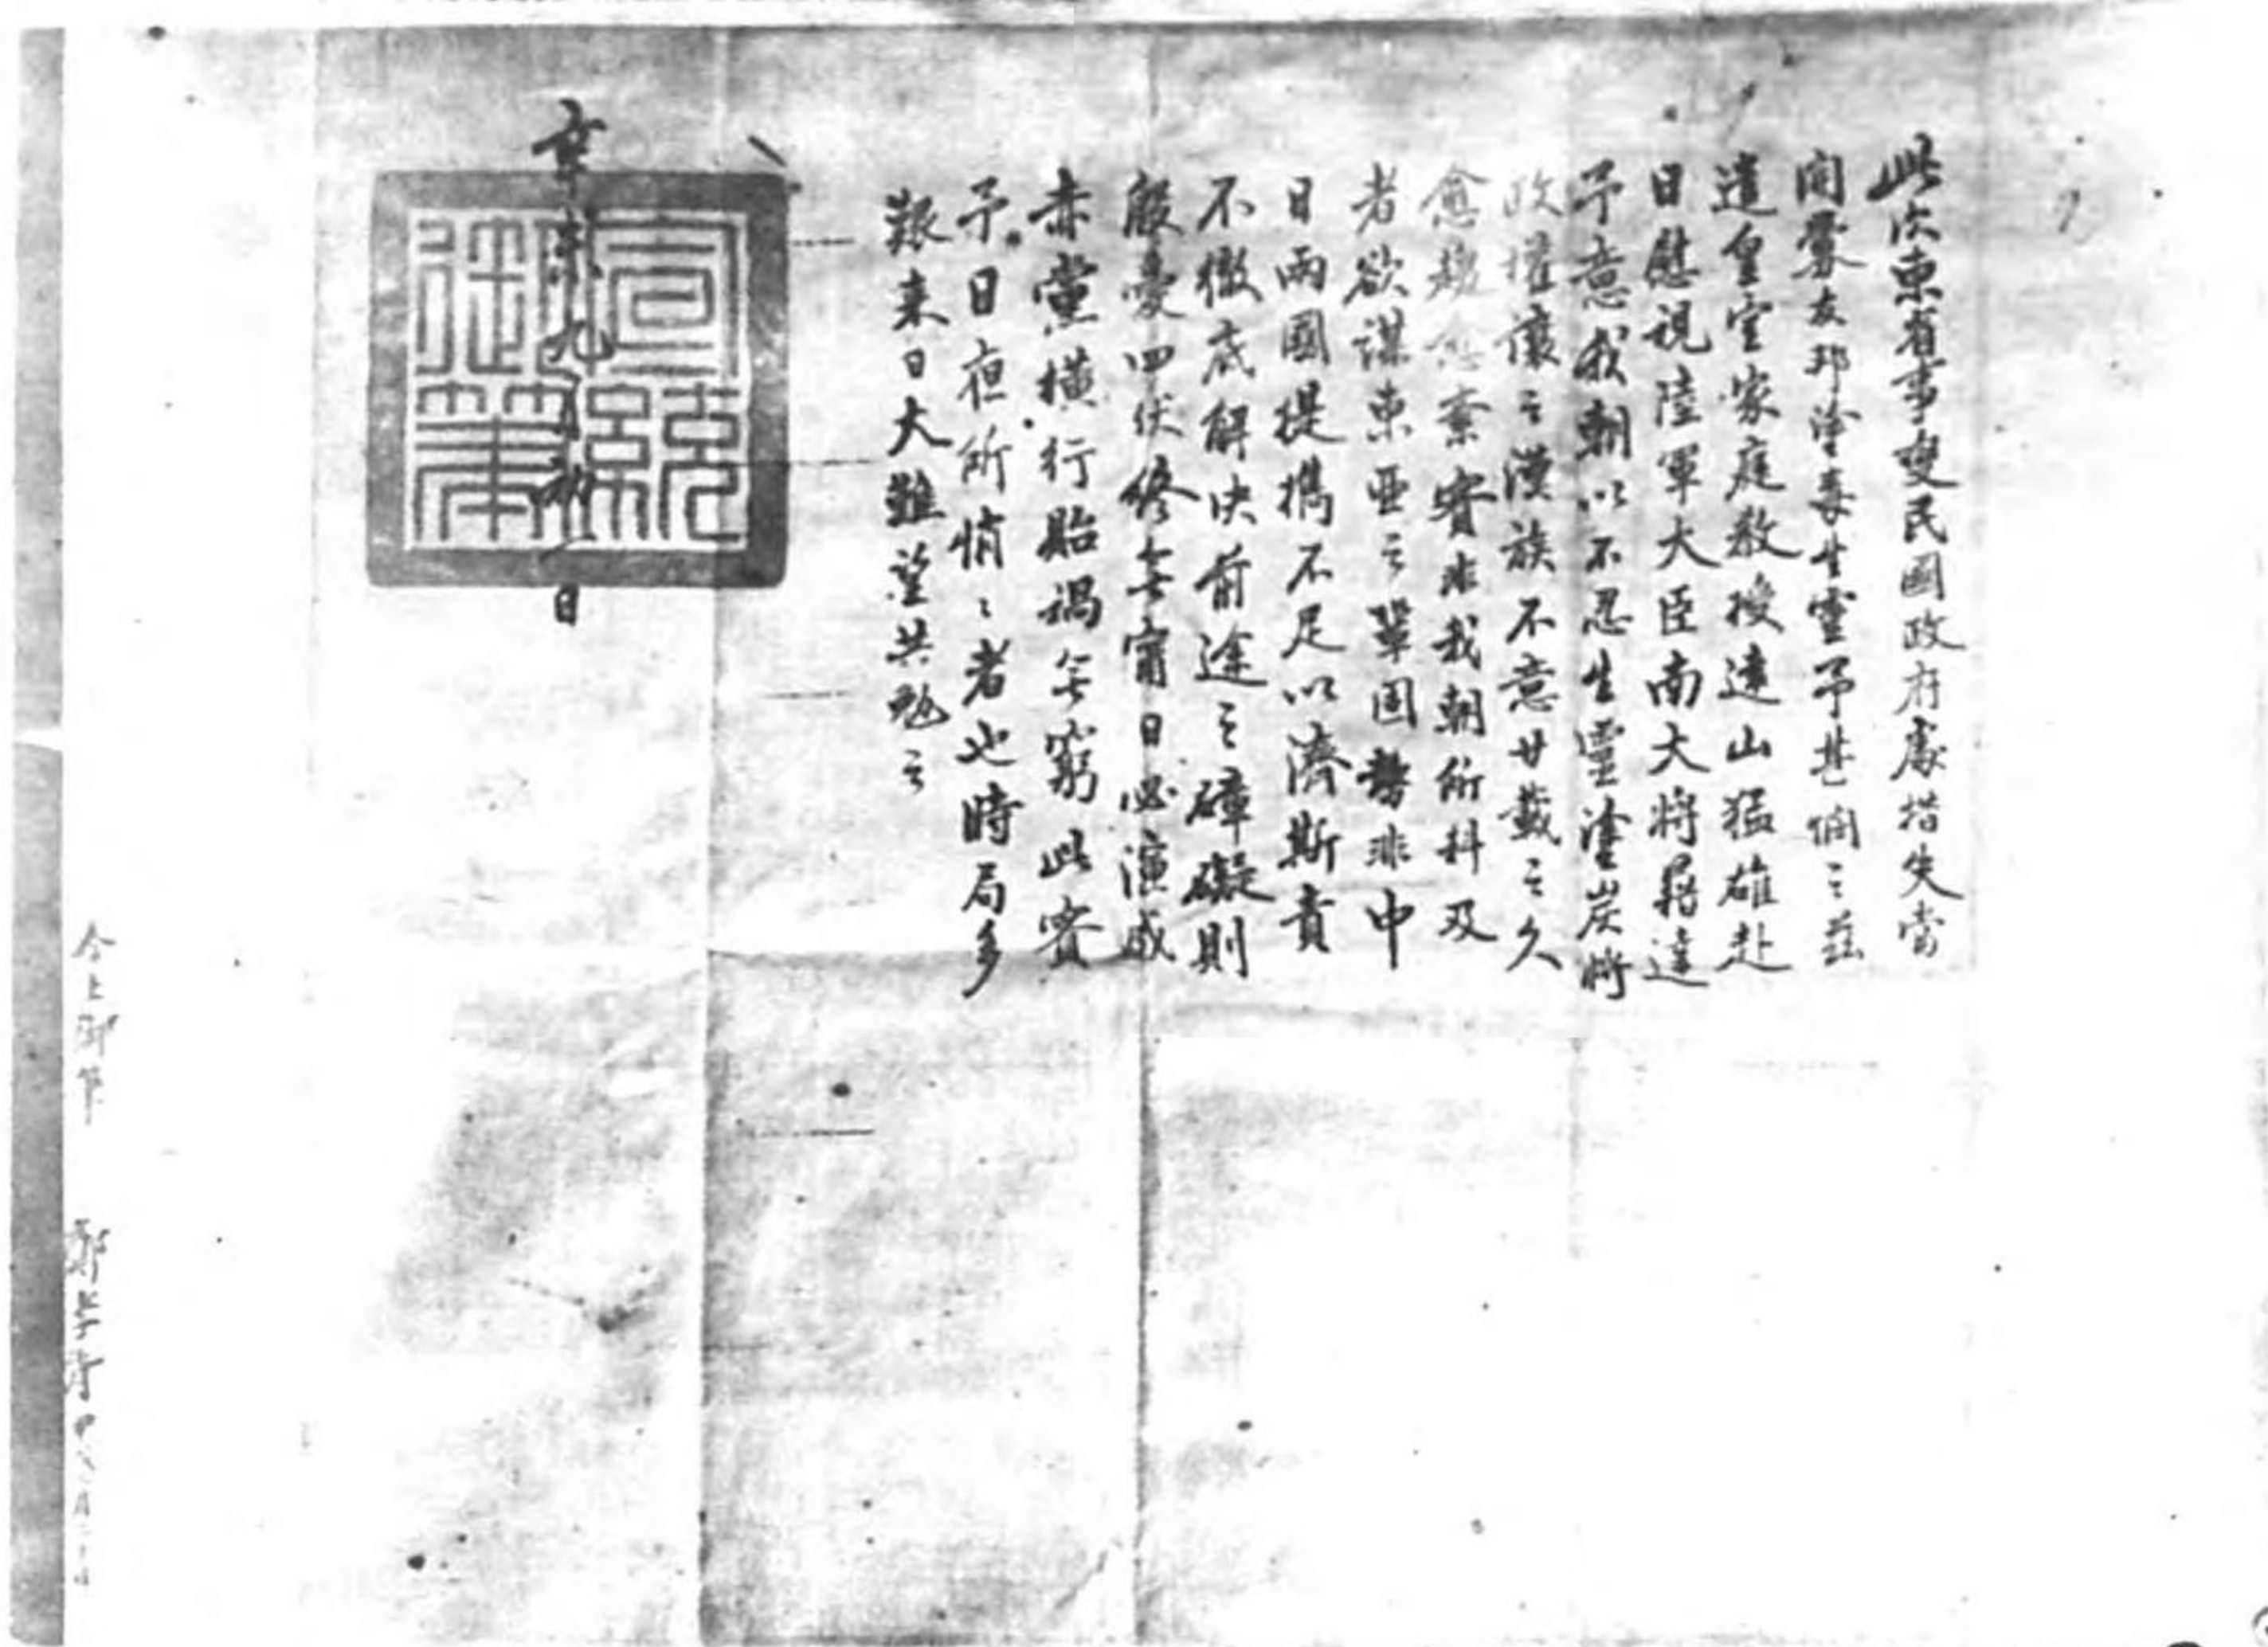 此次東省事變民國政府處措失當
開釁友邦塗毒生靈予甚憫之茲
遣皇室家庭教授遠山猛雄赴
日慰視陸軍大臣南大將轉達
予意我朝以不忍生靈塗炭將
政權讓之漢族不意廿載之久
愈趨愈紊實非我朝所料及
者欲謀東亞之鞏固勢非中
日兩國提攜不足以濟斯責
不徹底解決前途之障礙則
殷憂四伏終無寧日必演成
赤黨橫行貽禍無窮此實
予日夜所悄々者也時局多
艱来日大難望共勉之
宣統御筆
今上御筆 鄭孝胥